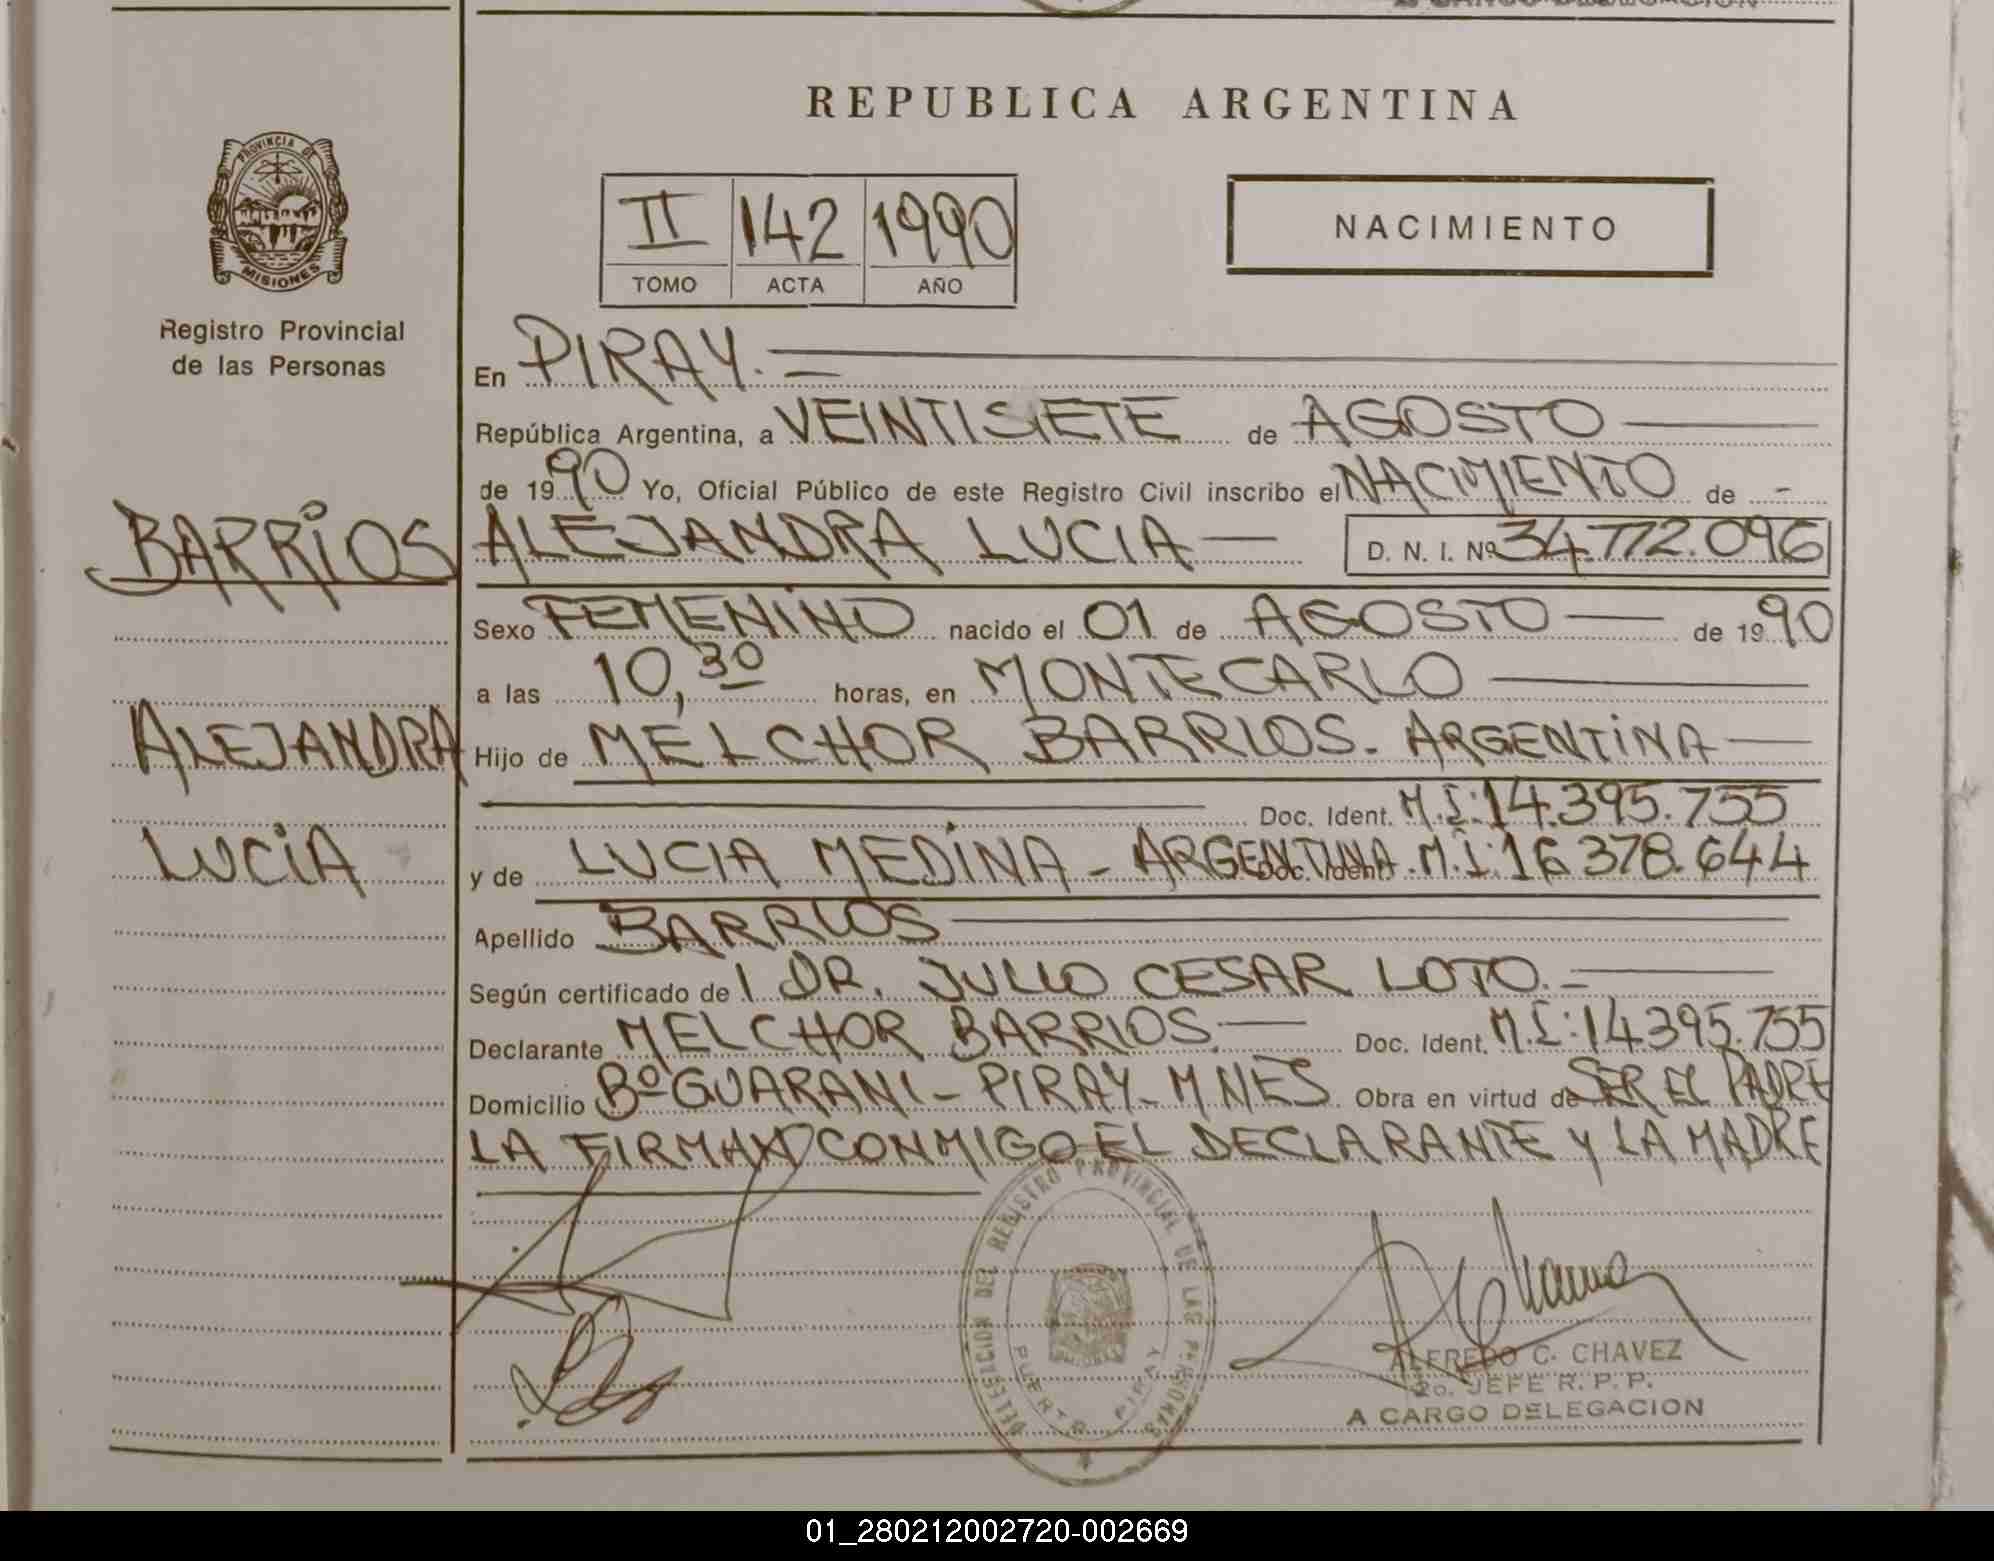 REPUBLICA ARGENTINA
PROVINCIA DE
MISIONES
Registro Provincial
de las Personas
II 142 1990
TOMO ACTA AÑO
NACIMIENTO
En PIRAY.-
República Argentina, a VEINTISIETE de AGOSTO
de 1990 Yo, Oficial Público de este Registro Civil inscribo el NACIMIENTO de -
BARRIOS
ALEJANDRA LUCIA D. N. I. Nº 34.772.096
Sexo FEMENINO nacido el 01 de AGOSTO de 1990
a las 10,30 horas, en MONTECARLO
ALEJANDRA
Hijo de MELCHOR BARRIOS. ARGENTINA
Doc. Ident. M.I:14.395.755
LUCIA
y de LUCIA MEDINA - ARGENTINA. Doc. Ident. M.I:16.378.644
Apellido BARRIOS
Según certificado de l DR. JULIO CESAR LOTO.-
Declarante MELCHOR BARRIOS. Doc. Ident. M.I:14.395.755
Domicilio Bº GUARANI - PIRAY - MNES Obra en virtud de SER EL PADRE
LA FIRMAN CONMIGO EL DECLARANTE Y LA MADRE
DELEGACION DEL REGISTRO PROVINCIAL DE LAS PERSONAS
PUERTO PIRAY
ALFREDO C. CHAVEZ
2o. JEFE R. P. P.
A CARGO DELEGACION
01_280212002720-002669